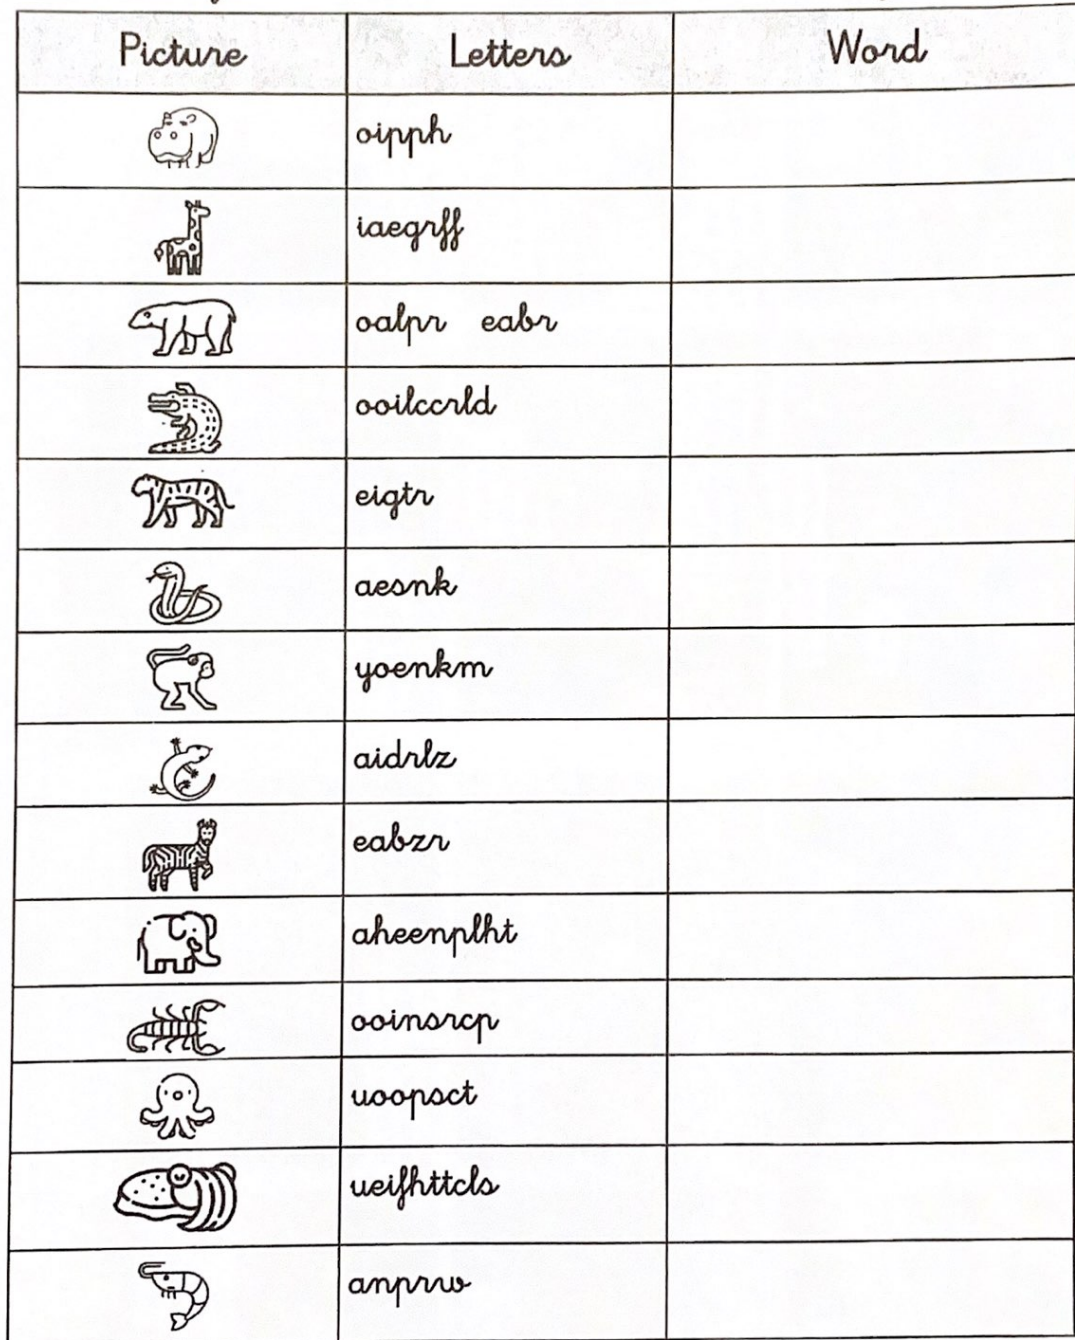 Picture Letters Word
oipph
iaegrff
oalpr eabr
ooilccrld
eigtr
aesnk
yoenkm
aidrlz
eabzr
aheenplht
ooinsrcp
uoopsct
ueifhttcls
anprw